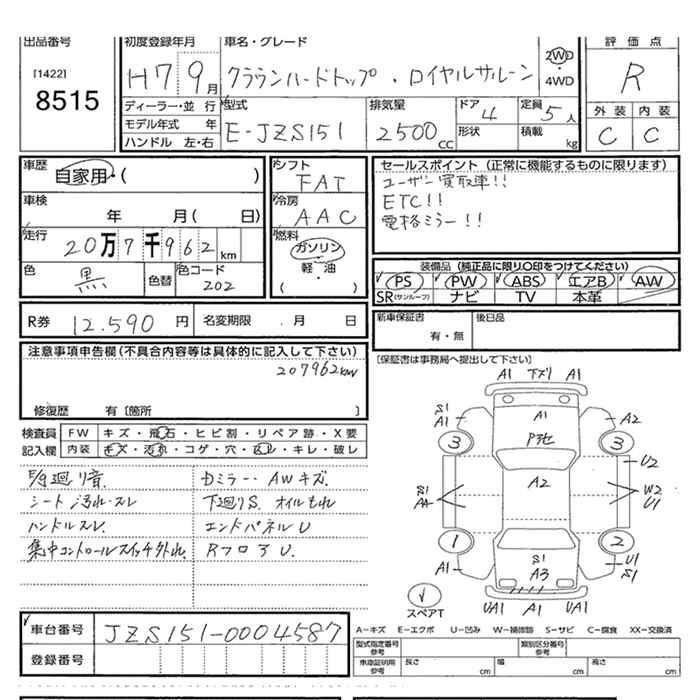 出品番号
[1422]
8515
初度登録年月
H7 9月
車名・グレード
クラウンハードトップ . ロイヤルサルーン
2WD
4WD
評価点
R
外装 内装
C C
ディーラー・並 行
モデル年式 年
ハンドル 左・右
型式
E-JZS151
排気量
2500 CC
ドア 4
形状
定員 5 人
積載 kg
車歴
自家用・( )
車検
年 月( 日)
走行
20万7千962 km
色
黒
色替
色コード
202
シフト
FAT
冷房
AAC
燃料
ガソリン
軽・油
( )
セールスポイント (正常に機能するものに限ります)
ユーザー買取車!!
ETC!!
電格ミラー!!
装備品 (純正品に限り○印をつけてください)
PS PW ABS エアB AW
SR(サンルーフ) ナビ TV 本革
R券 12.590 円
名変期限 . 月 日
新車保証書
有・無
後日品
[保証書は事務局へ提出して下さい]
注意事項申告欄(不具合内容等は具体的に記入して下さい)
207962km
修復歴 有〔箇所 〕
検査員
記入欄
FW キズ・飛石・ヒビ割・リペア跡・X要
内装 キズ・汚れ・コゲ・穴・スレ・キレ・破レ
F/9廻り音
シート汚れ・スレ
ハンドルスレ
集中コントロールスイッチ外れ.
Dミラー・AWキズ.
下廻りS. オイルもれ
エンドパネルU
RフロアU.
A1 下ズリ A1
S1
A1
A1
P飛
A2
3 3
A2
U2
S1
AA
W2
U1
1 2
A1
S1
A3
U1
S1
スペアT
UA1 A1 UA1
車台番号
JZS151-0004587
登録番号
A-キズ E-エクボ U-凹み W-補修跡 S-サビ C-腐食 XX-交換済
型式指定番号
参考
類別区分番号
参考
車庫証明用
参考
長さ cm
幅 cm
高さ cm